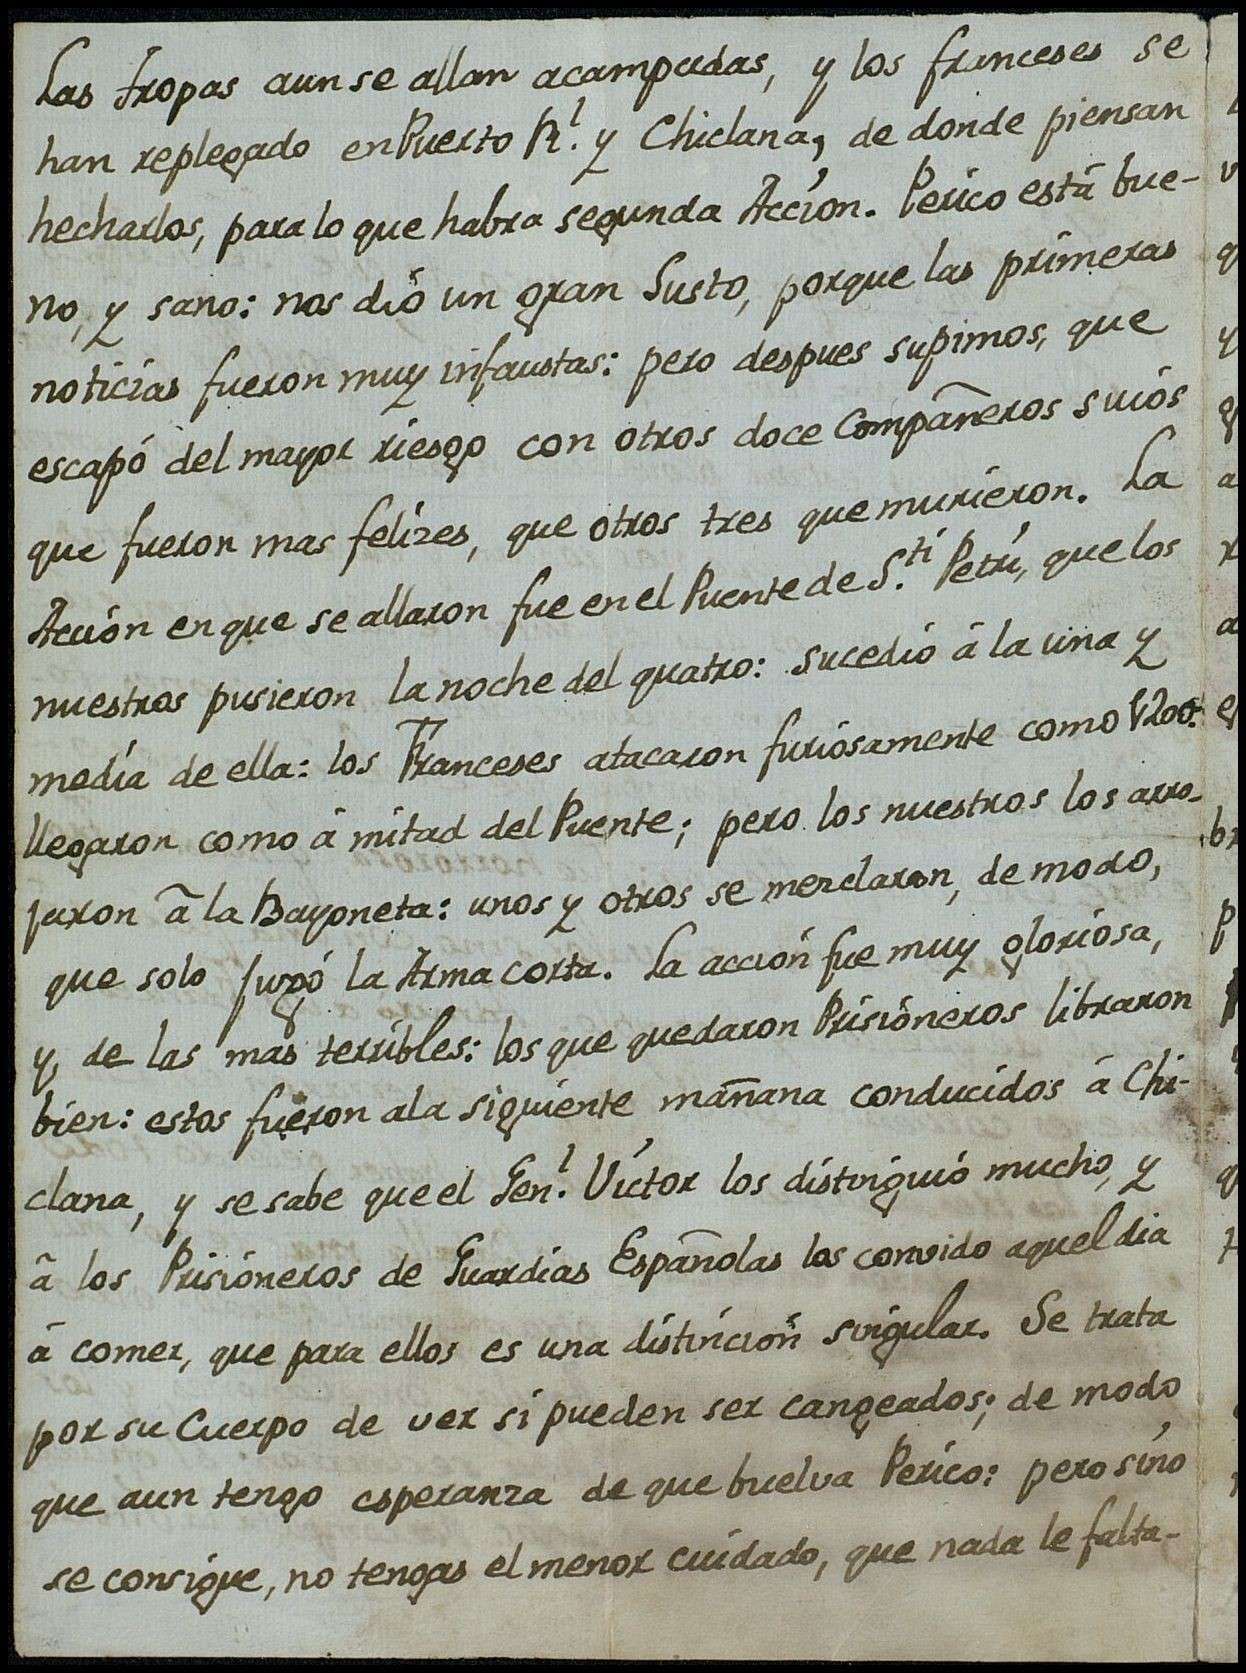 Las tropas aun se allan acampadas, y los franceses se
han replegado en Puerto R.l y Chiclana, de donde piensan
hecharlos, para lo que habra segunda Accion. Perico está bue-
no, y sano: nos dió un gran Susto, porque las primeras
noticias fueron muy infaustas: pero despues supimos, que
escapó del mayor riesgo con otros doce Compañeros suios
que fueron mas felizes, que otros tres que murieron. La
Accion en que se allaron fue en el Puente de S.ti Petri, que los
nuestros pusieron la noche del quatro: sucedió á la una y
media de ella: los Franceses atacaron furiosamente como
llegaron como á mitad del Puente; pero los nuestros los arro-
jaron á la Bayoneta: unos y otros se mezclaron, de modo,
que solo jugó la Arma corta. La acción fue muy gloriosa,
y de las mas terribles: los que quedaron Prisioneros libraron
bien: estos fueron a la siguiente mañana conducidos á Chi-
clana, y se sabe que el Gen.l Victor los distinguió mucho, y
á los Prisioneros de Guardias Españolas los convido aquel dia
á comer, que para ellos es una distincion singular. Se trata
por su Cuerpo de ver si pueden ser cangeados; de modo
que aun tengo esperanza de que buelva Perico: pero sino
se consigue, no tengas el menor cuidado, que nada le falta-